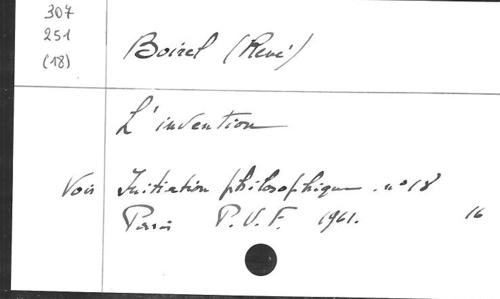 307
251
(18)
Boirel (René)
L'invention
Voir Initiation philosophique. n° 18
Paris P.U.F. 1961. 16